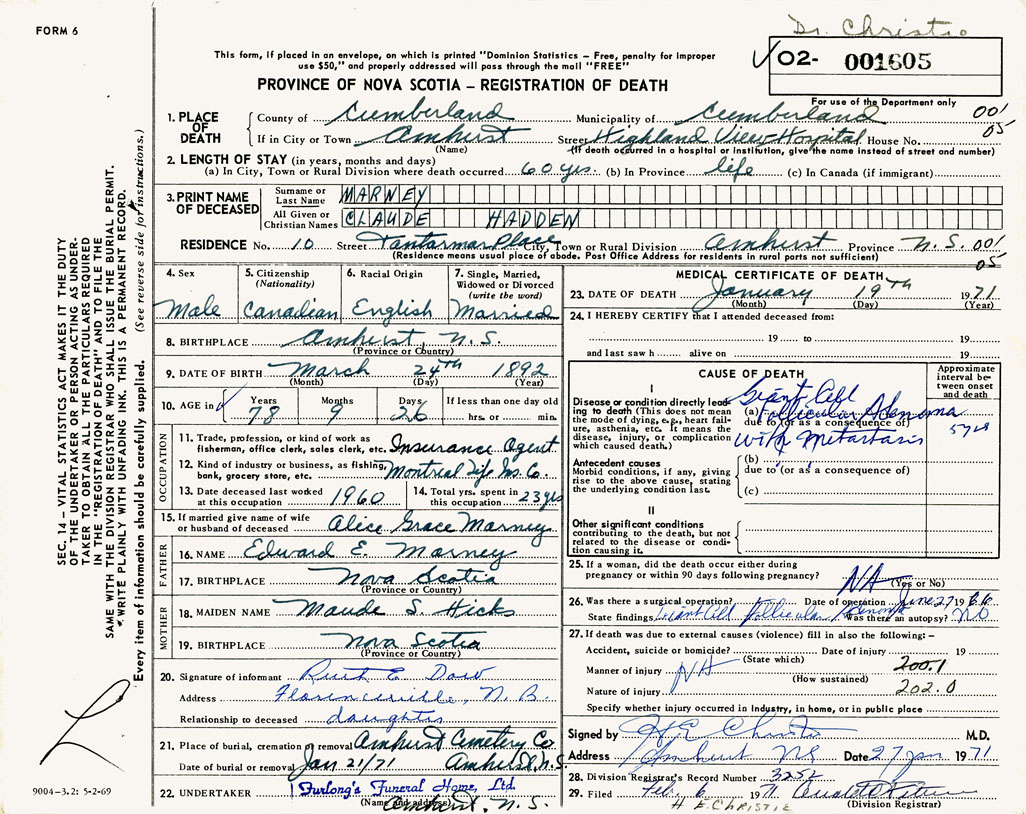 FORM 6
Dr. Christie
This form, if placed in an envelope, on which is printed "Dominion Statistics – Free, penalty for improper
use $50," and properly addressed will pass through the mail "FREE"
02- 001605
PROVINCE OF NOVA SCOTIA – REGISTRATION OF DEATH
For use of the Department only
1. PLACE OF DEATH
County of Cumberland Municipality of Cumberland 001
If in City or Town Amherst Street Highland View Hospital House No. 05
(Name) (If death occurred in a hospital or institution, give the name instead of street and number)
2. LENGTH OF STAY (in years, months and days)
(a) In City, Town or Rural Division where death occurred 60 yrs. (b) In Province life (c) In Canada (if immigrant)
3. PRINT NAME OF DECEASED
Surname or Last Name MARNEY
All Given or Christian Names CLAUDE HADDEN
RESIDENCE No. 10 Street Tantarmar Place City, Town or Rural Division Amherst Province N.S. 001
(Residence means usual place of abode. Post Office Address for residents in rural ports not sufficient) 05
4. Sex
Male
5. Citizenship
(Nationality)
Canadian
6. Racial Origin
English
7. Single, Married,
Widowed or Divorced
(write the word)
Married
8. BIRTHPLACE Amherst, N.S.
(Province or Country)
9. DATE OF BIRTH March 24TH 1892
(Month) (Day) (Year)
10. AGE in Years Months Days If less than one day old
78 9 26 hrs. or min.
OCCUPATION
11. Trade, profession, or kind of work as
fisherman, office clerk, sales clerk, etc. Insurance Agent
12. Kind of industry or business, as fishing,
bank, grocery store, etc. Montreal Life Ins. Co.
13. Date deceased last worked
at this occupation 1960
14. Total yrs. spent in
this occupation 23 yrs
15. If married give name of wife
or husband of deceased Alice Grace Marney
FATHER
16. NAME Edward E. Marney
17. BIRTHPLACE Nova Scotia
(Province or Country)
MOTHER
18. MAIDEN NAME Maude S. Hicks
19. BIRTHPLACE Nova Scotia
(Province or Country)
20. Signature of informant Ruth E. Dow
Address Florenceville, N.B.
Relationship to deceased daughter
21. Place of burial, cremation or removal Amherst Cemetery Co
Date of burial or removal Jan 21/71 Amherst, N.S.
22. UNDERTAKER Furlong's Funeral Home, Ltd.
(Name and address) Amherst, N.S.
MEDICAL CERTIFICATE OF DEATH
23. DATE OF DEATH January 19TH 1971
(Month) (Day) (Year)
24. I HEREBY CERTIFY that I attended deceased from:
19 to 19
and last saw h alive on 19
CAUSE OF DEATH
Approximate
interval be-
tween onset
and death
I
Disease or condition directly lead-
ing to death (This does not mean
the mode of dying, e.g., heart fail-
ure, asthenia, etc. It means the
disease, injury, or complication
which caused death.)
Giant Cell
(a) Follicular Adenoma
due to (or as a consequence of) 5 yrs
with Metastasis
Antecedent causes
Morbid conditions, if any, giving
rise to the above cause, stating
the underlying condition last.
(b)
due to (or as a consequence of)
(c)
II
Other significant conditions
contributing to the death, but not
related to the disease or condi-
tion causing it.
25. If a woman, did the death occur either during
pregnancy or within 90 days following pregnancy? NA
(Yes or No)
26. Was there a surgical operation? Date of operation June 27 1966
State findings Giant Cell Follicular Adenoma Was there an autopsy? NO
27. If death was due to external causes (violence) fill in also the following: –
Accident, suicide or homicide? Date of injury 19
(State which)
Manner of injury NA 200.1
(How sustained)
Nature of injury 202.0
Specify whether injury occurred in industry, in home, or in public place
Signed by H E Christie M.D.
Address Amherst NS Date 27 Jan 1971
28. Division Registrar's Record Number 3252
29. Filed Feb. 6 1971
(Division Registrar)
H E. CHRISTIE
SEC. 14 – VITAL STATISTICS ACT MAKES IT THE DUTY
OF THE UNDERTAKER OR PERSON ACTING AS UNDER-
TAKER TO OBTAIN ALL THE PARTICULARS REQUIRED
IN THE "REGISTRATION OF DEATH" AND TO FILE THE
SAME WITH THE DIVISION REGISTRAR WHO SHALL ISSUE THE BURIAL PERMIT.
WRITE PLAINLY WITH UNFADING INK. THIS IS A PERMANENT RECORD.
Every item of information should be carefully supplied. (See reverse side for instructions.)
9004–3.2: 5-2-69